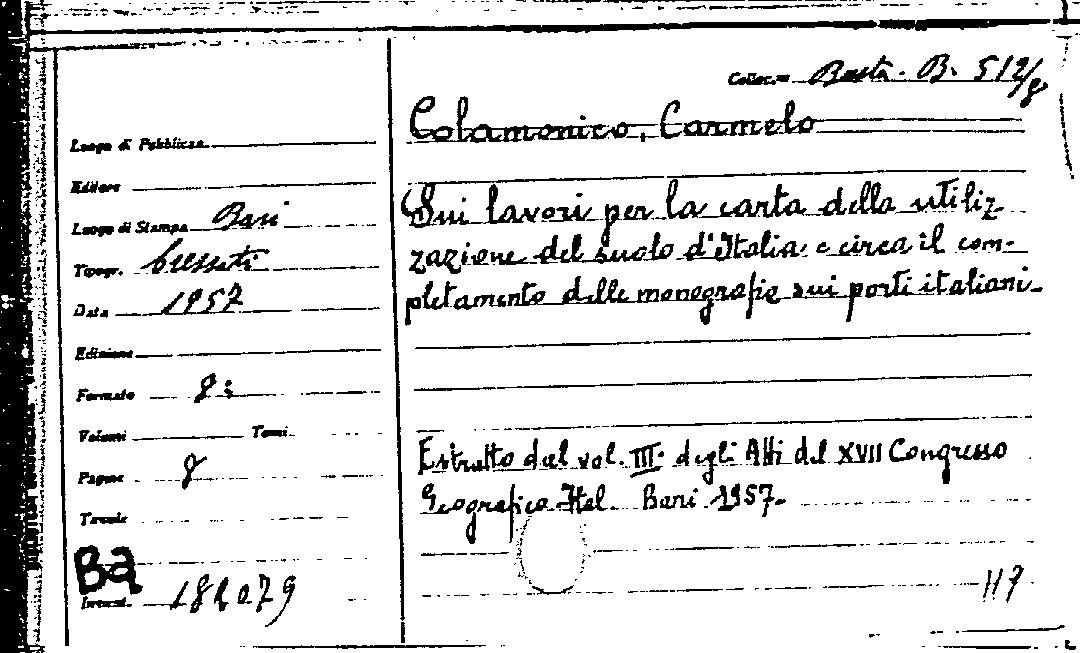 Colloc.ne Busta. B. 512/8
Colamonico, Carmelo
Sui lavori per la carta della utiliz-
zazione del suolo d'Italia e circa il com-
pletamento delle monografie sui porti italiani.
Estratto dal vol. III. degli Atti del XVII Congresso
Geografico Ital. Bari 1957.
117
Luogo di Pubblicaz.
Editore
Luogo di Stampa Bari
Tipogr. Cressati
Data 1957
Edizione
Formato 8:
Volumi Tomi
Pagine 8
Tavole
Ba
Invent. 182079